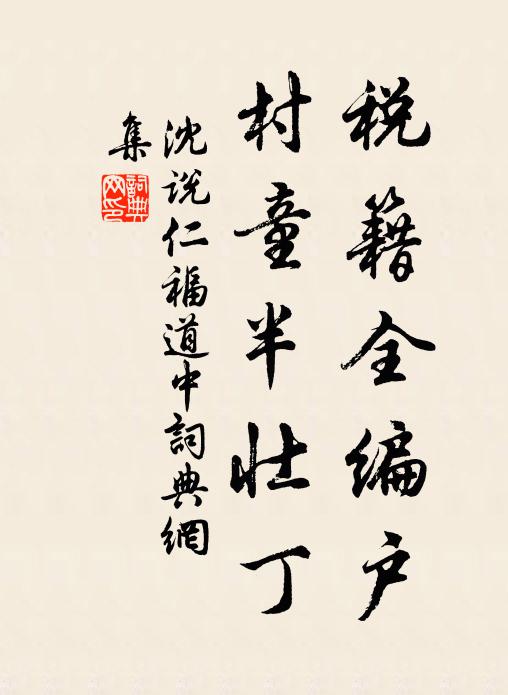 税籍全编户
村童半壮丁
沈说仁福道中詞典網
集
詞典
网印